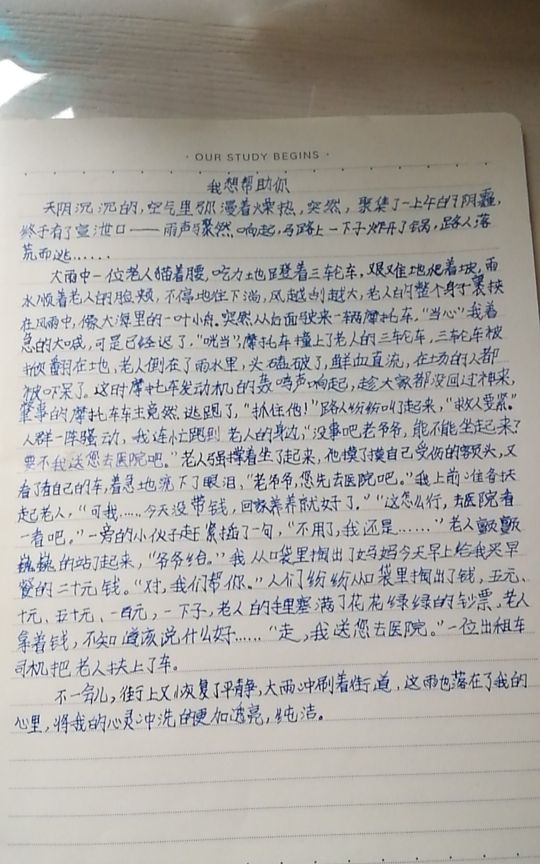 · OUR STUDY BEGINS ·
我想帮助你
天阴沉沉的，空气里弥漫着燥热，突然，聚集了一上午的阴霾，
终于有了宣泄口——雨声骤然响起，马路上一下子炸开了锅，路人落
荒而逃……
大雨中一位老人猫着腰，吃力地蹬着三轮车，艰难地爬着坡，雨
水顺着老人的脸颊，不停地往下淌，风越刮越大，老人的整个身子裹挟
在风雨中，像大海里的一叶小舟。突然从后面驶来一辆摩托车，“当心”我着
急的大喊，可是已经迟了，“咣当”，摩托车撞上了老人的三轮车，三轮车被
掀翻在地，老人倒在了雨水里，头磕破了，鲜血直流，在场的人都
被吓呆了。这时摩托车发动机的轰鸣声响起，趁大家都没回过神来，
肇事的摩托车车主竟然逃跑了，“抓住他！”路人纷纷叫了起来，“救人要紧。”
人群一阵骚动，我连忙跑到老人的身边，“没事吧老爷爷，能不能坐起来？
要不我送您去医院吧。”老人强撑着坐了起来，他摸了摸自己受伤的额头，又
看了看自己的车，着急地流下了眼泪，“老爷爷，您先去医院吧。”我上前准备扶
起老人，“可我……今天没带钱，回家养养就好了。”“这怎么行，去医院看
一看吧，”一旁的小伙子赶紧插了一句，“不用了，我还是……”老人颤颤
巍巍的站了起来，“爷爷给。”我从口袋里掏出了妈妈今天早上给我买早
餐的二十元钱。“对，我们帮你。”人们纷纷从口袋里掏出了钱，五元、
十元、五十元、一百元，一下子，老人的手里塞满了花花绿绿的钞票，老人
拿着钱，不知道该说什么好……“走，我送您去医院。”一位出租车
司机把老人扶上了车。
不一会儿，街上又恢复了平静，大雨冲刷着街道，这雨也落在了我的
心里，将我的心灵冲洗的更加透亮，纯洁。